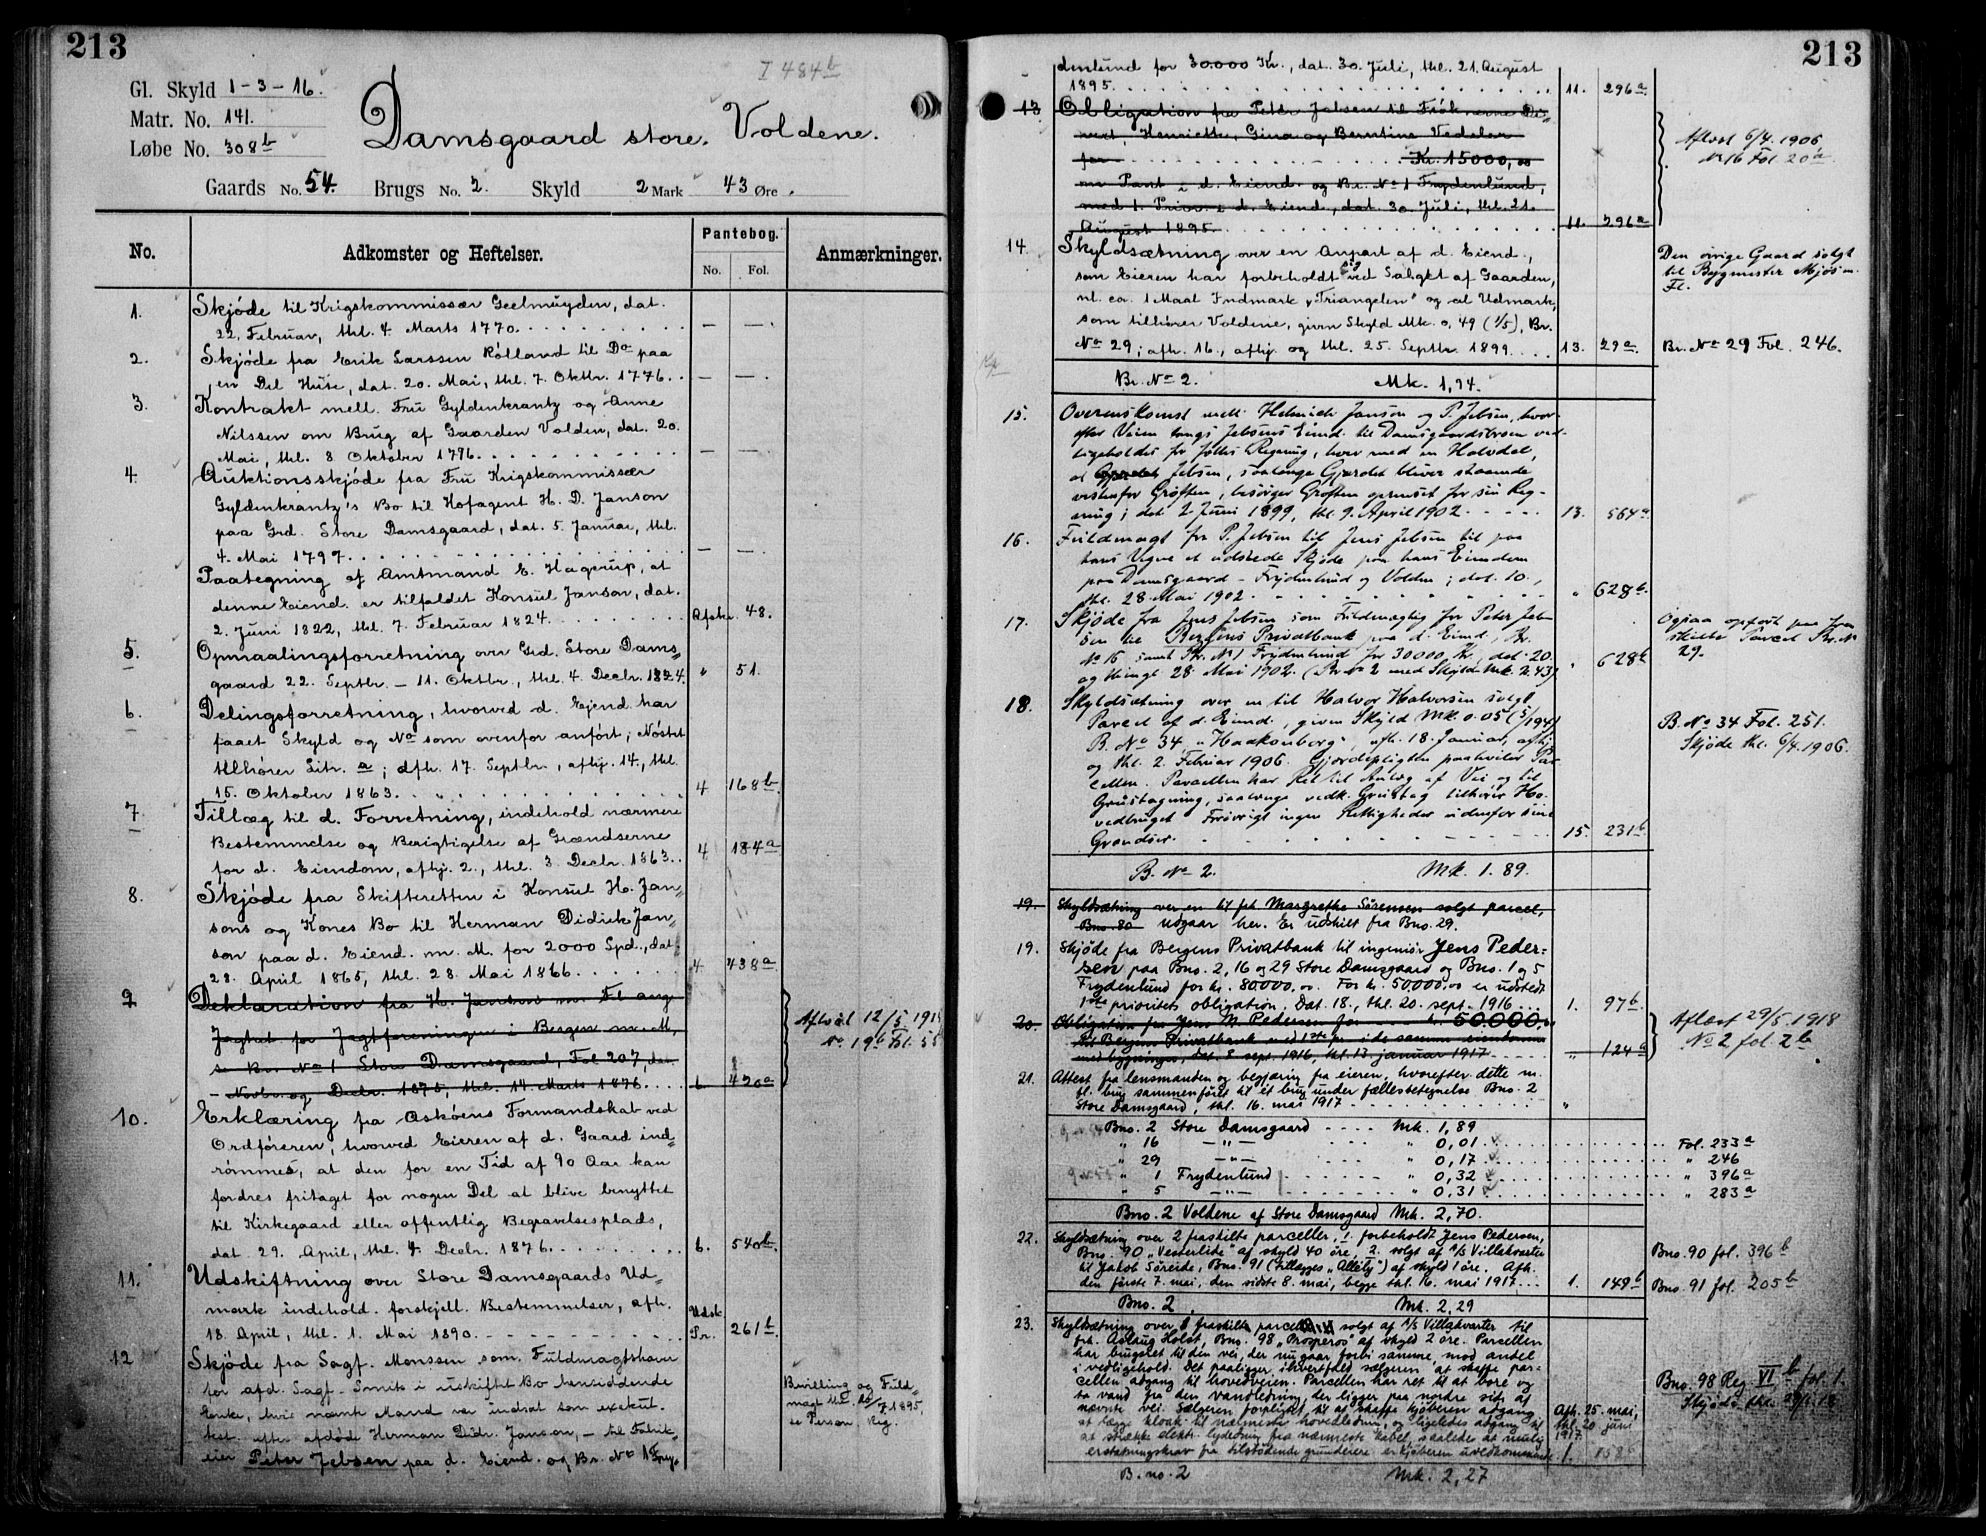 213
I 484b
Gl. Skyld 1-3-16.
Matr. No. 141.
Løbe No. 308b
Damsgaard store. Voldene.
Gaards No. 54. Brugs No. 2. Skyld 2 Mark 43 Øre.
No. Adkomster og Heftelser. Pantebog. No. Fol. Anmærkninger.
1. Skjøde til Krigskommissær Geelmuyden, dat.
22. Februar, thl. 4. Marts 1770. — —.
2. Skjøde fra Erik Larssen Rolland til Do paa
en Del Huse, dat. 20. Mai, thl. 7. Oktbr. 1776. — —.
3. Kontrakt mell. Fru Gyldenkrantz og Anne
Nilssen om Brug af Gaarden Volden, dat. 20.
Mai, thl. 8 Oktober 1796. — —.
4. Auktionsskjøde fra Fru Krigskommissær
Gyldenkrantz's Bo til Hofagent H. D. Janson
paa Grd. Store Damsgaard, dat. 5. Januar, thl.
4. Mai 1797. — —.
Paategning af Amtmand E. Hagerup, at
denne Eiend. er tilfaldet Konsul Janson, dat.
2. Juni 1822, thl. 7. Februar 1824. Afskr. 48.
5. Opmaalingsforretning over Grd. Store Dams=
gaard 22. Septbr. – 11. Oktbr., thl. 4. Decbr. 1824. " 51.
6. Delingsforretning, hvorved d. Ejend. har
faaet Skyld og No som ovenfor anført; Nøstet
tilhører Litr. a; afh. 17. Septbr., afhj. 14., thl.
15. Oktober 1863. 4 168b.
7. Tillæg til d. Forretning, indehold. nærmere
Bestemmelse og Berigtigelse af Grændserne
for d. Eiendom, afhj. 2., thl. 3. Decbr. 1863. 4 184a
8. Skjøde fra Skifteretten i Konsul H. Jan=
sons og Kones Bo til Herman Didrik Jan=
son paa d. Eiend. m. M. for 2000 Spd., dat.
28. April 1865, thl. 28. Mai 1866. 4. 438a
9. Deklaration fra H. Janson m. Fl. ang.
Jagtret for Jagtforeningen i Bergen m. M.,
se Br. No 1 Store Damsgaard, Fol 207, dat.
– Novbr. og Decbr. 1875, thl. 14. Marts 1876. 6. 420a
Aflæst 12/5 191
No 19b Fol. 55
10. Erklæring fra Askøens Formandskab ved
Ordføreren, hvorved Eieren af d. Gaard ind=
rømmes, at den for en Tid af 90 Aar kan
fordres fritaget for nogen Del at blive benyttet
til Kirkegaard eller offentlig Begravelsesplads,
dat. 29. April, thl. 4. Decbr. 1876. 6. 540b.
11. Udskiftning over Store Damsgaards Ud=
mark indehold. forskjell. Bestemmelser, afh.
18. April, thl. 1. Mai 1890. Udsk. Pr. 261b.
12 Skjøde fra Sagf. Monssen som Fuldmagtshaver
for afd. Sagf. Smits i uskiftet Bo hensiddende
Enke, hvis nævnte Mand var indsat som exekut.
test. efter afdøde Herman Didr. Janson, – til Fabrik=
eier Peter Jebsen paa d. Eiend. og Br. No 1 Fry=
Bevilling og Fuld=
magt thl. 20/7 1895,
se Person. Reg.
213
denlund for 30.000 Kr., dat. 30. Juli, thl. 21. August
1895. 11. 296a.
13 Obligation fra Peter Jebsen til Frøknerne
Henriette, Gina og Berntine Vedeler
for Kr. 15000,00
m Pant i d. Eiend. og Br. No 1 Frydenlund,
med 1. Prior. i d. Eiend., dat. 30. Juli, thl. 21.
August 1895. 11. 296a
Aflæst 6/4 1906
No 16 Fol. 20a.
14. Skyldsætning over en Anpart af d. Eiend.,
som Eieren har forbeholdt sig ved Salget af Gaarden,
nl. ca. 1 Maal Indmark „Triangelen" og al Udmark,
som tilhører Voldene, given Skyld Mk. 0,49 (1/5), Br.
No 29; afh. 16., afhj. og thl. 25. Septbr. 1899. 13. 29a.
Den øvrige Gaard solgt
til Bygmester Mjøs m.
Fl.
Br. No 29 Fol. 246.
Br. No 2. Mk. 1,94.
15. Overenskomst mell. Helmich Janson og P. Jebsen, hvor-
efter Veien langs Jebsens Eiend. til Damsgaardsbroen ved-
ligeholdes for fælles Regning, hver med en Halvdel,
at Jebsen, saalænge Gjærdet bliver staaende
vestenfor Grøften, besørger Grøften oprenset for sin Reg-
ning; dat 2 Juni 1899, thl. 9. April 1902. 13. 564a
16. Fuldmagt fra P. Jebsen til Jens Jebsen til paa
hans Vegne at udstede Skjøde paa hans Eiendom
paa Damsgaard – Frydenlund og Volden; dat. 10.,
thl. 28. Mai 1902. " 628b.
17. Skjøde fra Jens Jebsen som Fuldmægtig for Peter Jeb-
sen til Bergens Privatbank paa d. Eiend., Br.
No 16 samt Br. No 1 Frydenlund for 30000 Kr., dat. 20.
og thingl. 28. Mai 1902. (Br. No 2 med Skyld Mk. 2.43) " 628b
Ogsaa opført paa fra
skilte Parcel Br. No
29.
18. Skyldsætning over en til Halvor Halvorsen solgt
Parcel af d. Eiend., given Skyld Mk. 0.05 (5/194)
B. No 34 „Haakonborg", afh. 18. Januar, afhj.
og thl. 2. Februar 1906. Gjerdepligten paahviler Par-
cellen. Parcellen har Ret til Anlæg af Vei og til
Grustagning, saalænge vedk. Grustag tilhører Ho-
vedbruget. Forøvrigt ingen Rettigheder udenfor sine
Grændser. 15. 231b
B. No 34 Fol. 251.
Skjøde thl. 6/4.1906.
B. No 2. Mk. 1.89.
19. Skyldsætning over en til frk. Margrethe Sörensen solgt parcel,
Bno. 80 udgaar her. Er udskilt fra Bno. 29.
19. Skjøde fra Bergens Privatbank til ingeniør Jens Peder=
sen paa Bno. 2, 16 og 29 Store Damsgaard og Bno. 1 og 5
Frydenlund for kr. 80000,00. For kr. 50.000,00 er udstedt
1ste prioritets obligation. Dat. 18., thl. 20. sept. 1916. 1. 97b.
20. Obligation fra Jens M. Pedersen for kr. 50.000,00
til Bergens Privatbank med 1ste pr. i de samme eiendomme
med bygninger, dat. 8 sept. 1916, thl. 13. januar 1917. " 124a
Aflæst 29/5.1918
No. 2 fol. 2b
21. Attest fra lensmanden og begjæring fra eieren, hvorefter dette m.
fl. brug sammenføiet til et brug under fællesbetegnelse Bno. 2
Store Damsgaard, thl. 16. mai 1917. "
Bno. 2 Store Damsgaard Mk. 1,89
" 16 —"— " 0,01 Fol. 233a
" 29 —"— " 0,17 " 246
" 1 Frydenlund " 0,32 " 396a
" 5 —"— " 0,31 " 283a
Bno. 2 Voldene af Store Damsgaard Mk. 2,70.
22. Skyldsætning over 2 fraskilte parceller, 1. forbeholdt Jens Pedersen,
Bno. 90 „Vesterlide" af skyld 40 øre, 2. solgt af A/S Villakvarter
til Jakob Søreide, Bno. 91 (tillægges „Allély") af skyld 1 øre. Afh.
den første 7. mai, den sidste 8. mai, begge thl. 16. mai 1917. 1. 149b
Bno. 90 fol. 396b
Bno. 91 fol. 205b
Bno. 2. Mk. 2,29
23. Skyldsætning over 1 fraskilt parcel solgt af A/S Villakvarter til
frk. Aslaug Holst, Bno. 98 „Prosperos" af skyld 2 øre. Parcellen
har brugsret til den vei, der nu gaar forbi samme, mod andel
i vedligehold. Det paaligger ihvertfald sælgeren at skaffe par-
cellen adgang til hovedveien. Parcellen har ret til at bore og
ta vand fra den vandledning, der ligger paa nordre side af
nævnte vei. Sælgeren forpligtet til at skaffe kjøberen adgang
at lægge kloak til nærmeste hovedledning, og ligeledes adgang til
at strække elektr. lysledning fra nærmeste kabel, saaledes at mulig
erstatningskrav fra tilstødende grundeiere er kjøberen uvedkommende.
Afh. 25. mai,
thl. 20. juni
1917. 1. 158a
Bno. 98 Reg. VI b fol. 1.
B. no. 2 Mk. 2,27